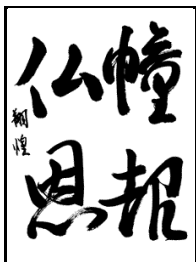 幢報
仏恩
翔煌